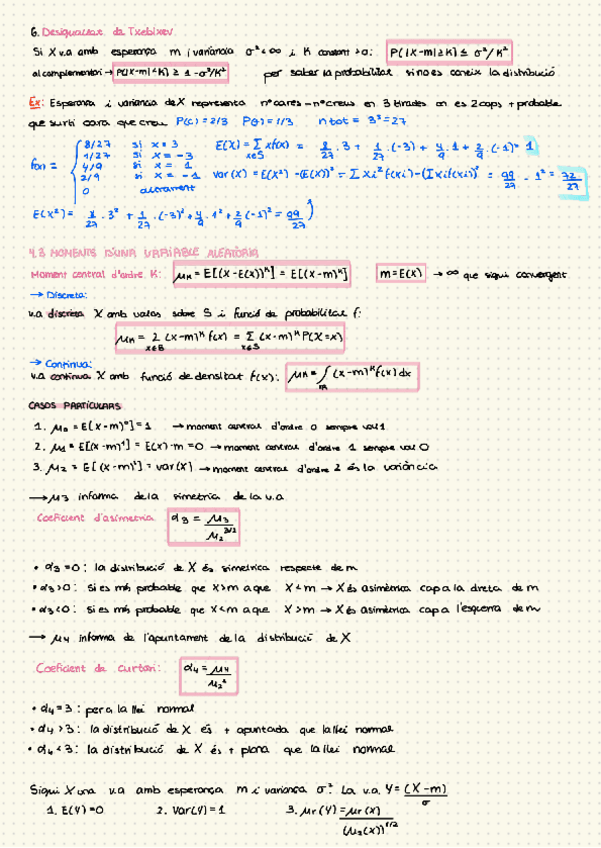 6. Desigualtat de Txebixev
Si X v.a amb esperança m i variància σ² < ∞ i K constant > 0: P(|X-m| ≥ K) ≤ σ²/K²
al complementari → P(|X-m| < K) ≥ 1 - σ²/K² per saber la probabilitat si no es coneix la distribució
Ex: Esperança i variància de X representa nº cares - nº creus en 3 tirades on es 2 cops + probable
que surti cara que creu P(C) = 2/3 P(+) = 1/3 n tot = 3³ = 27
f(x) = { 8/27 si x = 3
1/27 si x = -3
4/9 si x = 1
2/9 si x = -1
0 altrament
E(X) = Σ x f(x) = 8/27 · 3 + 1/27 · (-3) + 4/9 · 1 + 2/9 · (-1) = 1
x∈S
var(X) = E(X²) - (E(X))² = Σ xi² f(xi) - (Σ xi f(xi))² = 99/27 - 1² = 72/27
E(X²) = 8/27 · 3² + 1/27 · (-3)² + 4/9 · 1² + 2/9 · (-1)² = 99/27
4.3 MOMENTS D'UNA VARIABLE ALEATÒRIA
Moment central d'ordre K: μK = E[(X - E(X))ᴷ] = E[(X-m)ᴷ] m = E(X) → ∞ que sigui convergent
→ Discreta:
v.a discreta X amb valors sobre S i funció de probabilitat f:
μK = Σ (x-m)ᴷ f(x) = Σ (x-m)ᴷ P(X=x)
x∈S x∈S
→ Contínua:
v.a contínua X amb funció de densitat f(x): μK = ∫ (x-m)ᴷ f(x) dx
ℝ
CASOS PARTICULARS
1. μ0 = E[(X-m)⁰] = 1 → moment central d'ordre 0 sempre val 1
2. μ1 = E[(X-m)¹] = E(X) - m = 0 → moment central d'ordre 1 sempre val 0
3. μ2 = E[(X-m)²] = var(X) → moment central d'ordre 2 és la variància
→ μ3 informa de la simetria de la v.a
Coeficient d'asimetria α3 = μ3 / μ2^3/2
• α3 = 0: la distribució de X és simètrica respecte de m
• α3 > 0: si es més probable que X > m a que X < m → X és asimètrica cap a la dreta de m
• α3 < 0: si es més probable que X < m a que X > m → X és asimètrica cap a l'esquerra de m
→ μ4 informa de l'apuntament de la distribució de X
Coeficient de curtosi: α4 = μ4 / μ2²
• α4 = 3: per a la llei normal
• α4 > 3: la distribució de X és + apuntada que la llei normal
• α4 < 3: la distribució de X és + plana que la llei normal
Sigui X una v.a amb esperança m i variança σ². La v.a. Y = (X-m) / σ
1. E(Y) = 0 2. Var(Y) = 1 3. μr(Y) = μr(X) / (μ2(X))^r/2